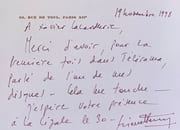 22, RUE DE TOUL, PARIS XIIᵉ
19 novembre 1998
A Xavier Lacavalerie,
Merci d'avoir, pour la
première fois dans Télérama,
parlé de l'un de mes
disques - Cela me touche -
J'espère votre présence
à la Cigale le 30 -